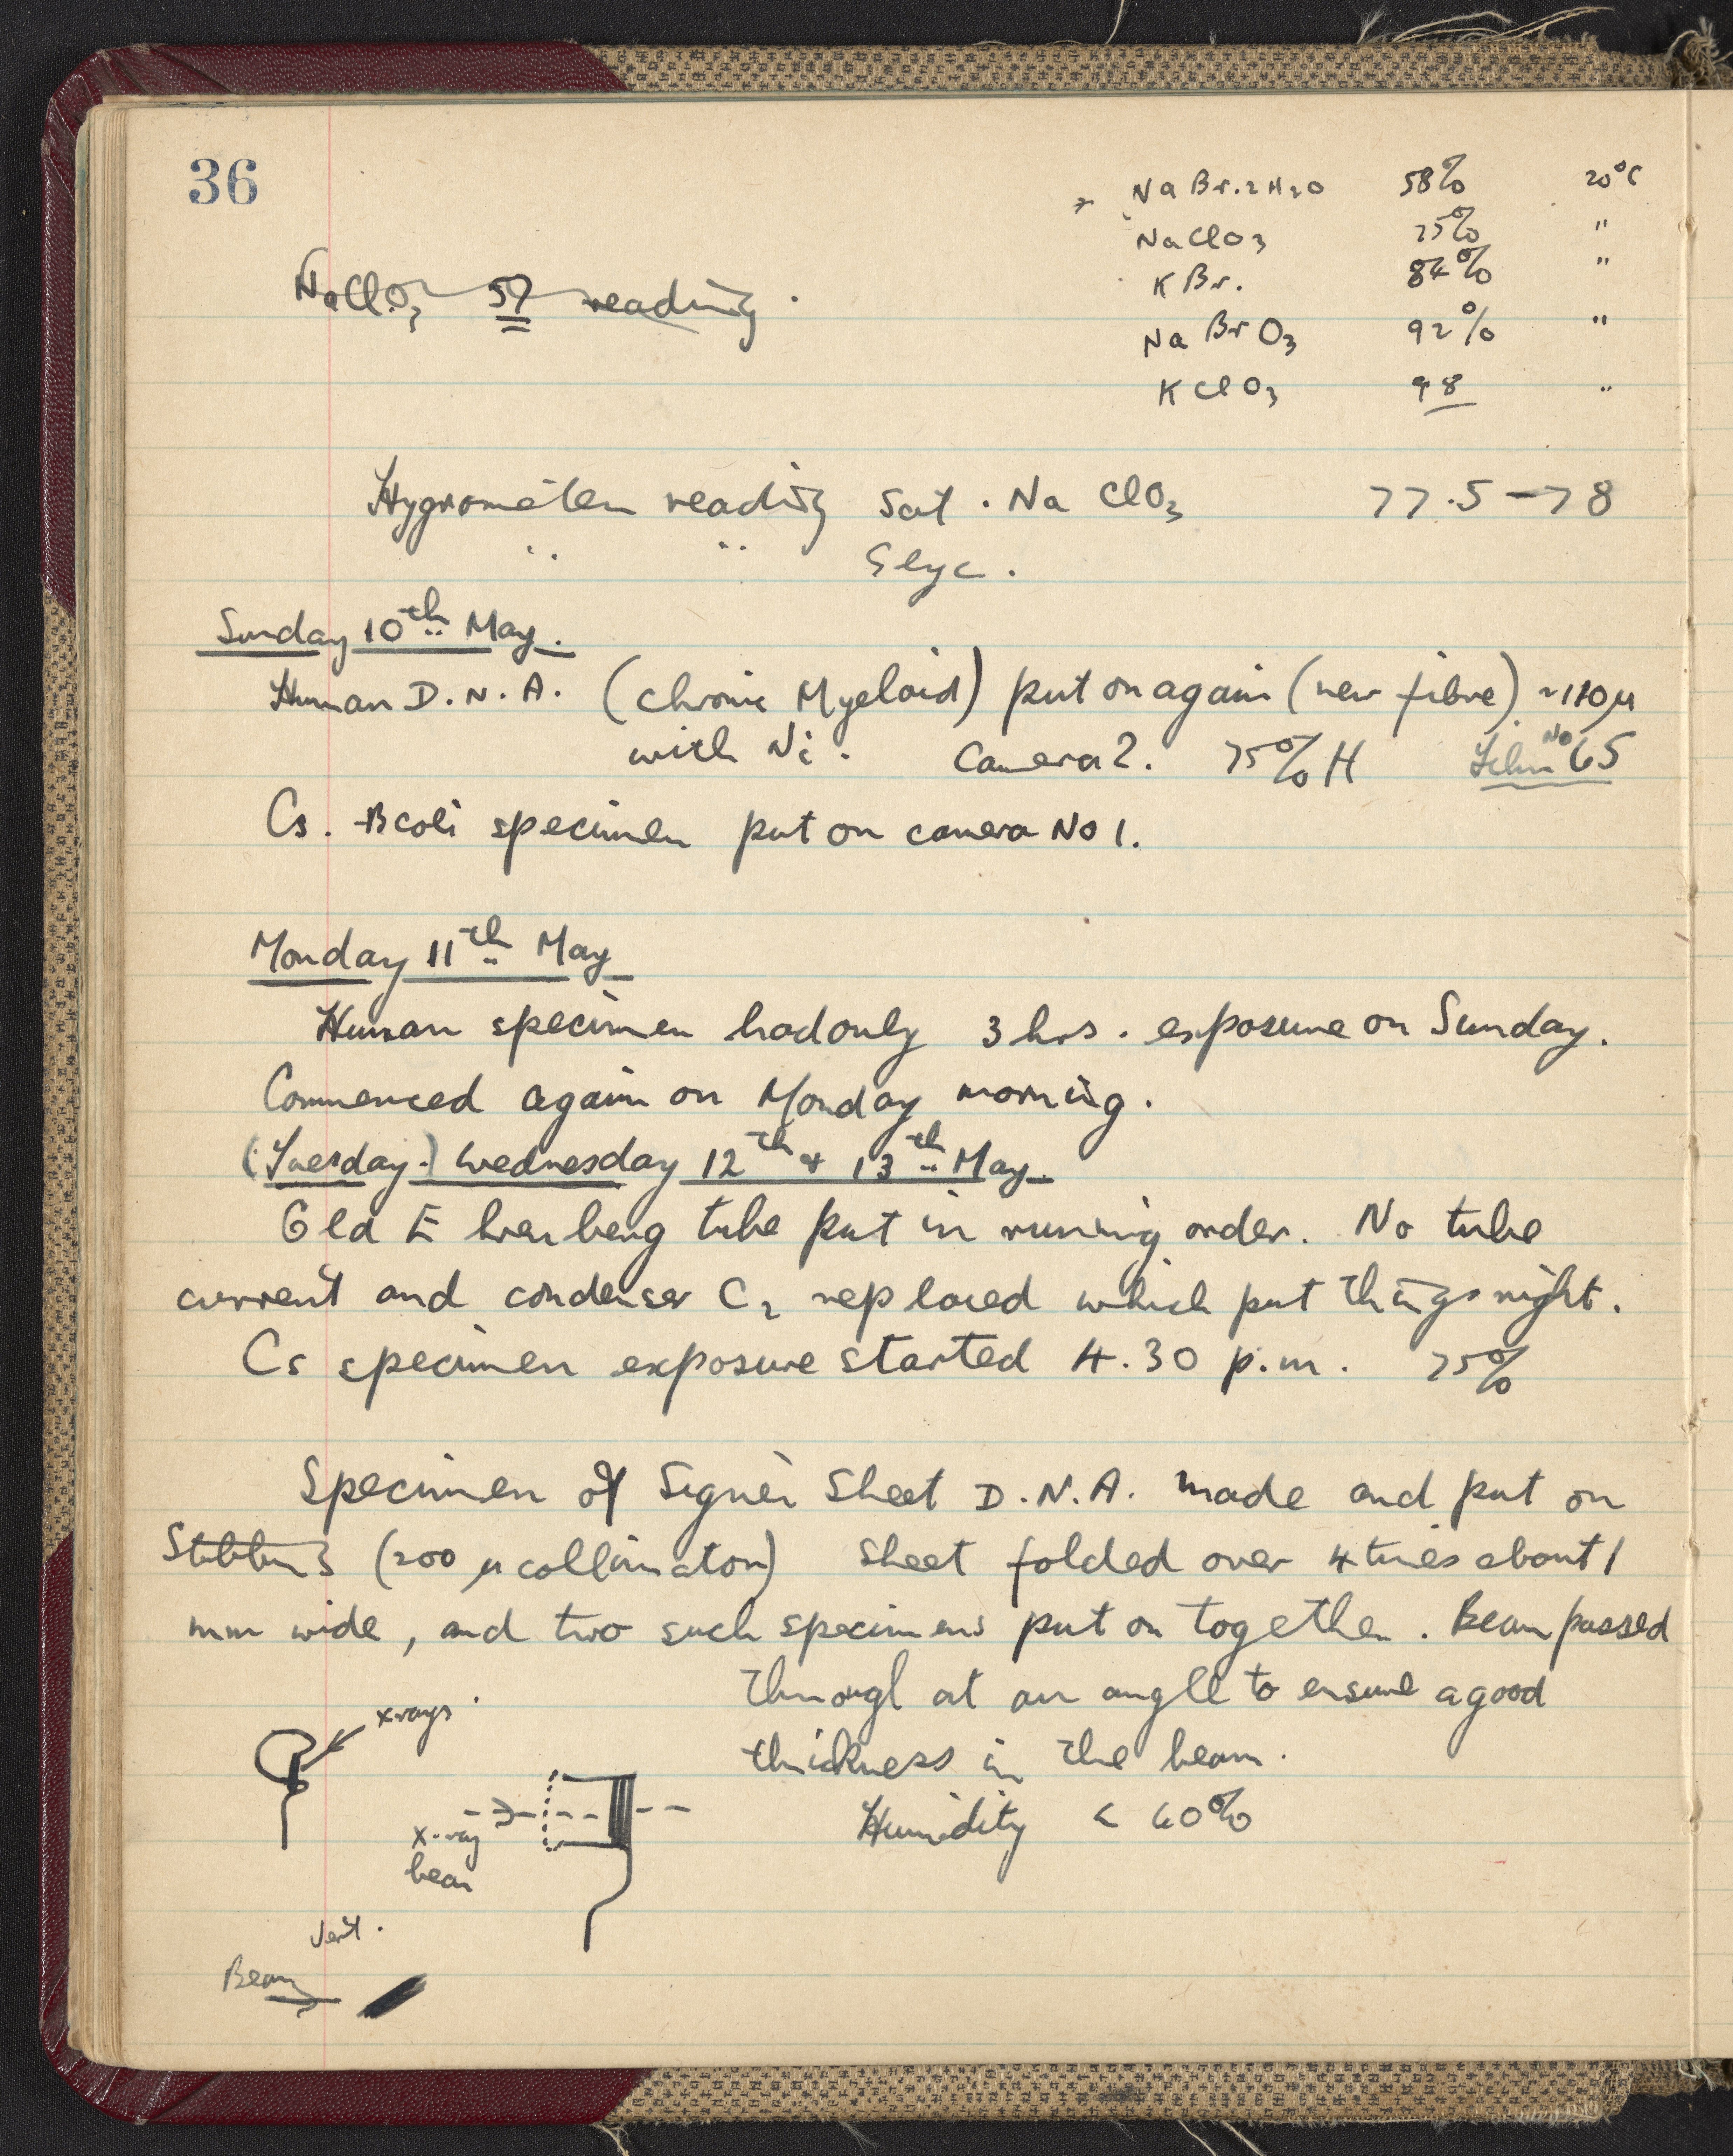 36
NaBr.2H2O 58% 20°C
NaClO3 75% "
KBr. 84% "
NaBrO3 92% "
KClO3 98 "
NaClO3 57 reading.
Hygrometer reading Sat. NaClO3 77.5 → 78
" " Glyc.
Sunday 10th May.
Human D.N.A. (Chronic Myeloid) put on again (new fibre) ~110μ
with Ni. Camera 2. 75% H Film No 65
Cs. B coli specimen put on camera No 1.
Monday 11th May
Human specimen had only 3 hrs. exposure on Sunday.
Commenced again on Monday morning.
(Tuesday.) Wednesday 12th & 13th May.
Old Ehrenberg tube put in running order. No tube
current and condenser C2 replaced which put things right.
Cs specimen exposure started 4.30 p.m. 75%
Specimen of Signer Sheet D.N.A. made and put on
(200 μ collimator) Sheet folded over 4 times about 1
mm wide, and two such specimens put on together. Beam passed
through at an angle to ensure a good
thickness in the beam.
Humidity < 60%
x-rays
x-ray
beam
Vert.
Beam